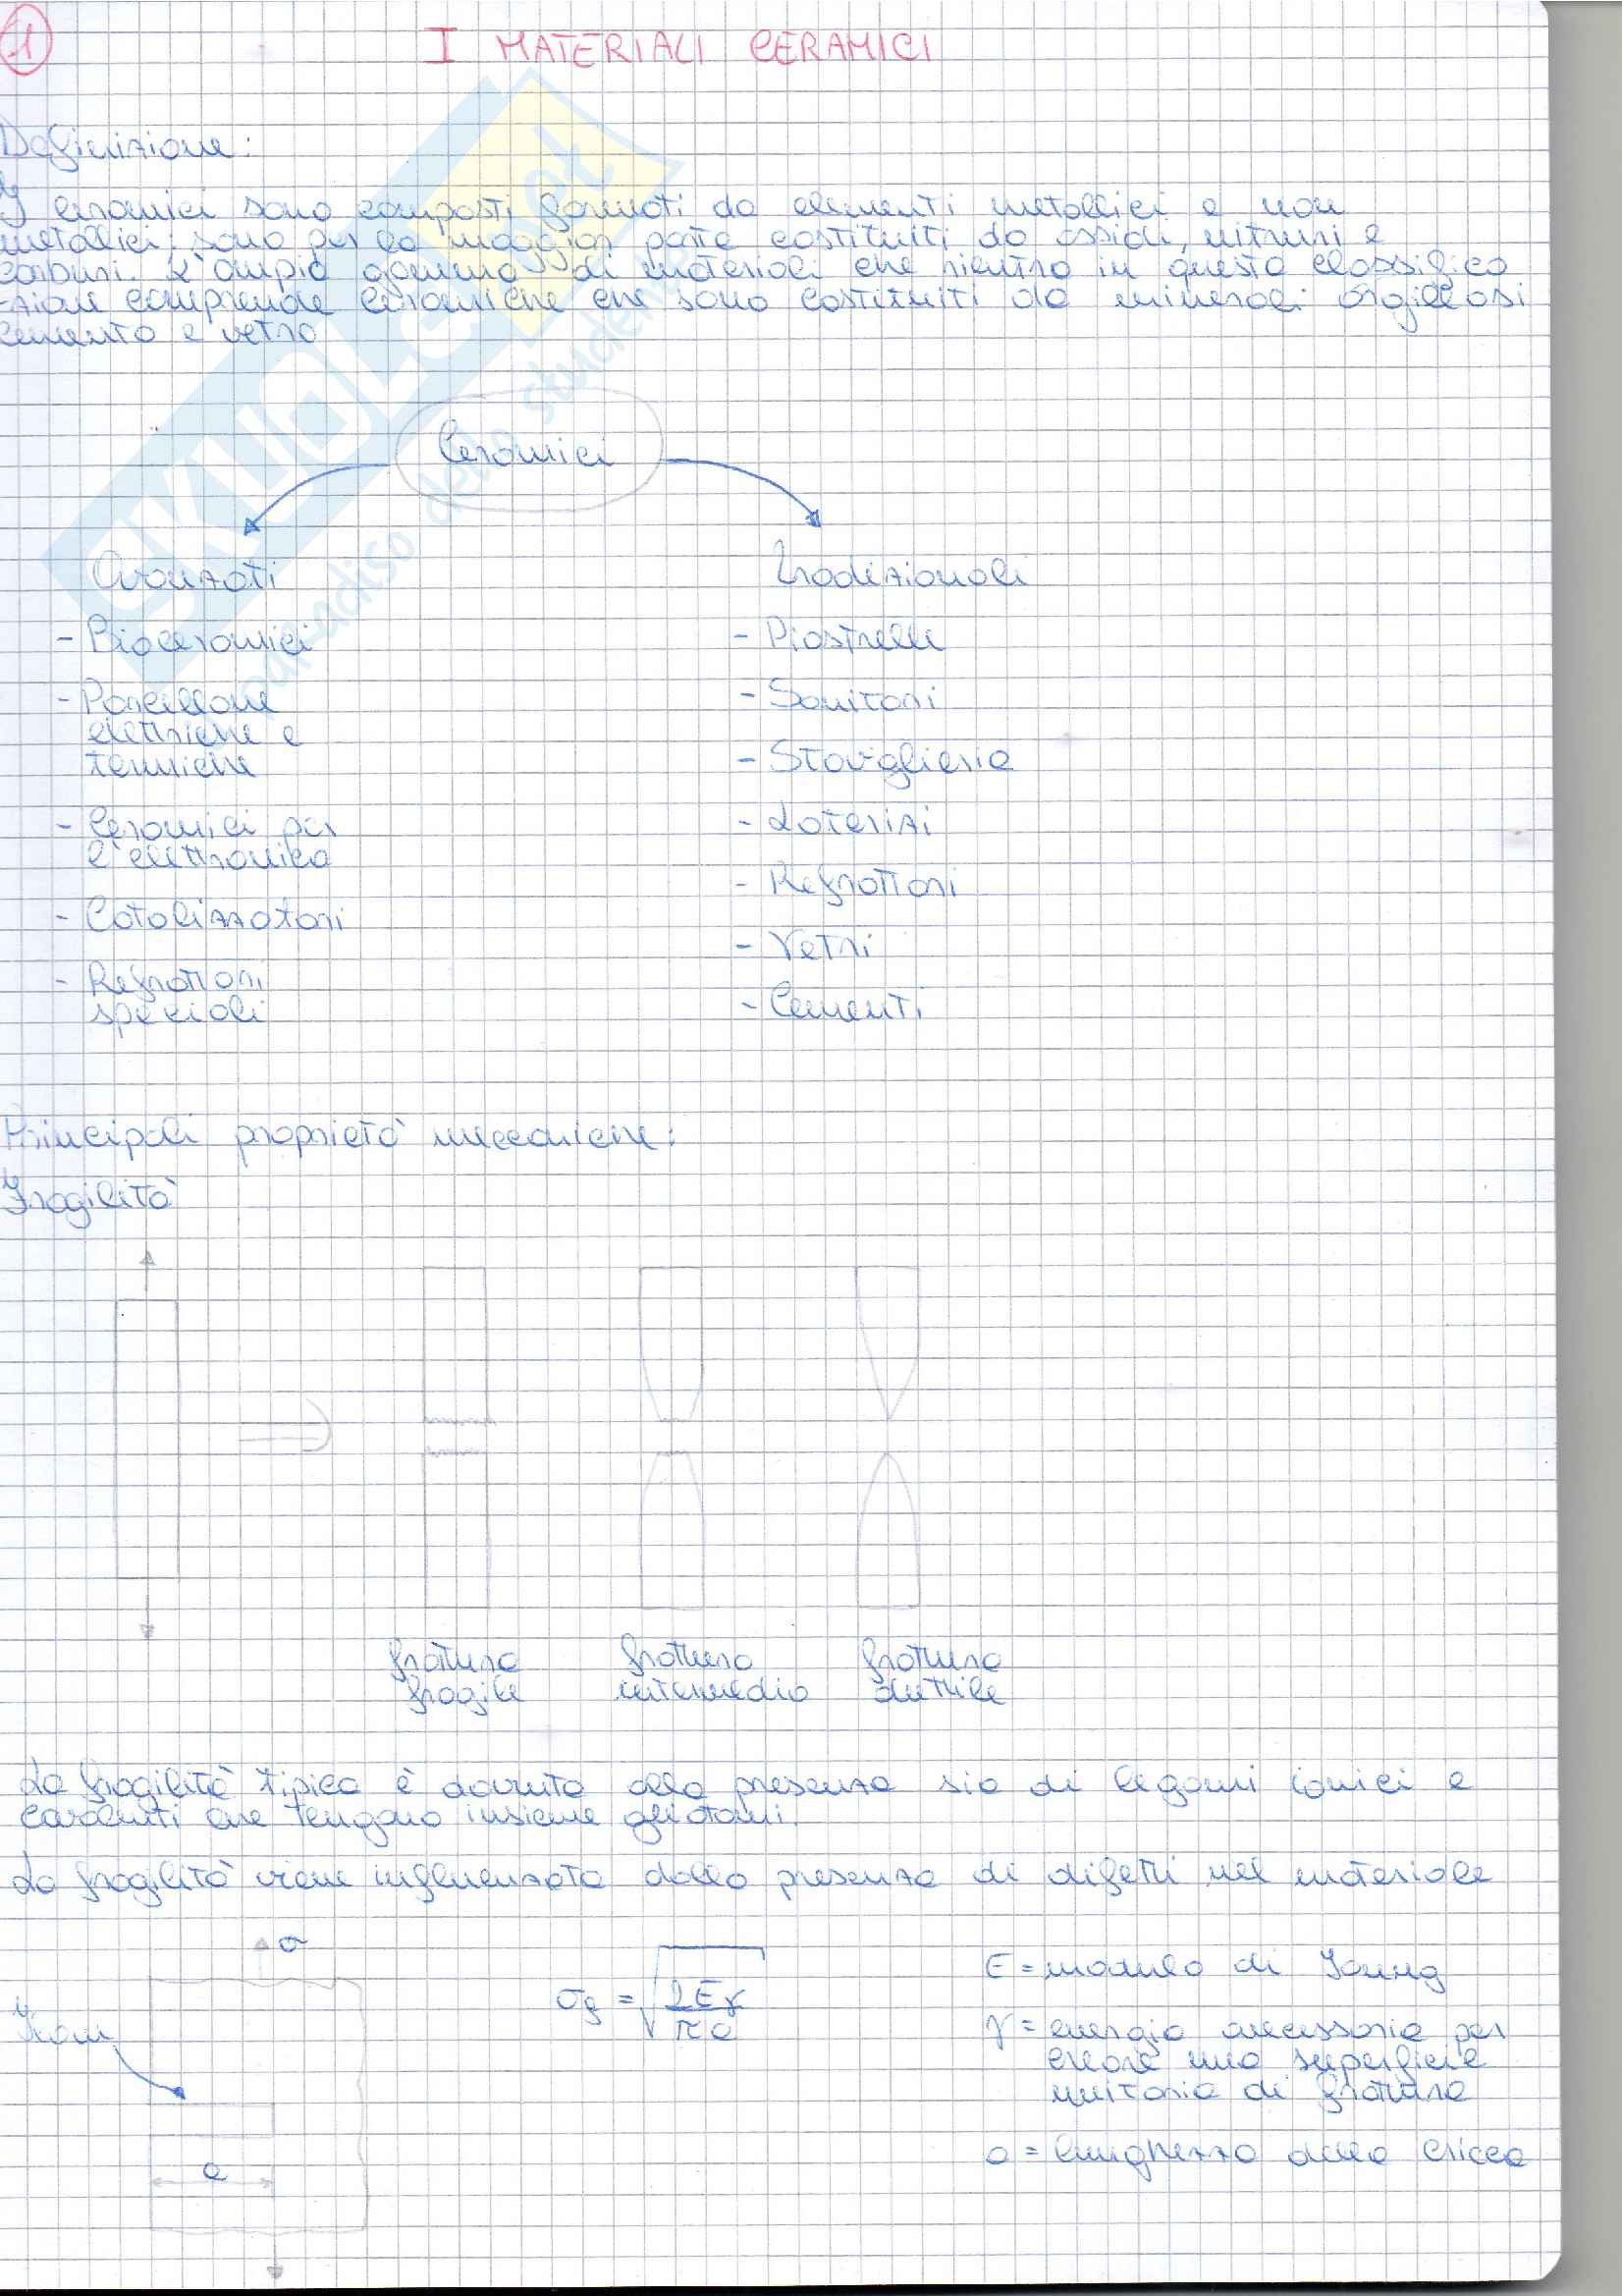 1
I MATERIALI CERAMICI
Definizione:
I ceramici sono composti formati da elementi metallici e non
metallici; sono per la maggior parte costituiti da ossidi, nitruri e
carburi. L'ampia gamma di materiali che rientra in questa classifica
-zione comprende ceramiche che sono costituiti da minerali argillosi
cemento e vetro
Ceramici
Avanzati
Tradizionali
- Bioceramici
- Porcellane
elettriche e
termiche
- Ceramici per
l'elettronica
- Catalizzatori
- Refrattari
speciali
- Piastrelle
- Sanitari
- Stoviglieria
- Laterizi
- Refrattari
- Vetri
- Cementi
Principali proprietà meccaniche:
Fragilità
frattura
fragile
frattura
intermedia
frattura
duttile
La fragilità tipica è dovuta alla presenza sia di legami ionici e
covalenti che tengono insieme gli atomi.
La fragilità viene influenzata dalla presenza di difetti nel materiale
σ
a
σf = √2Eγ/πa
E = modulo di Young
γ = energia necessaria per
creare una superficie
unitaria di frattura
a = lunghezza della cricca
SKUOLA.net
paradiso dello studente